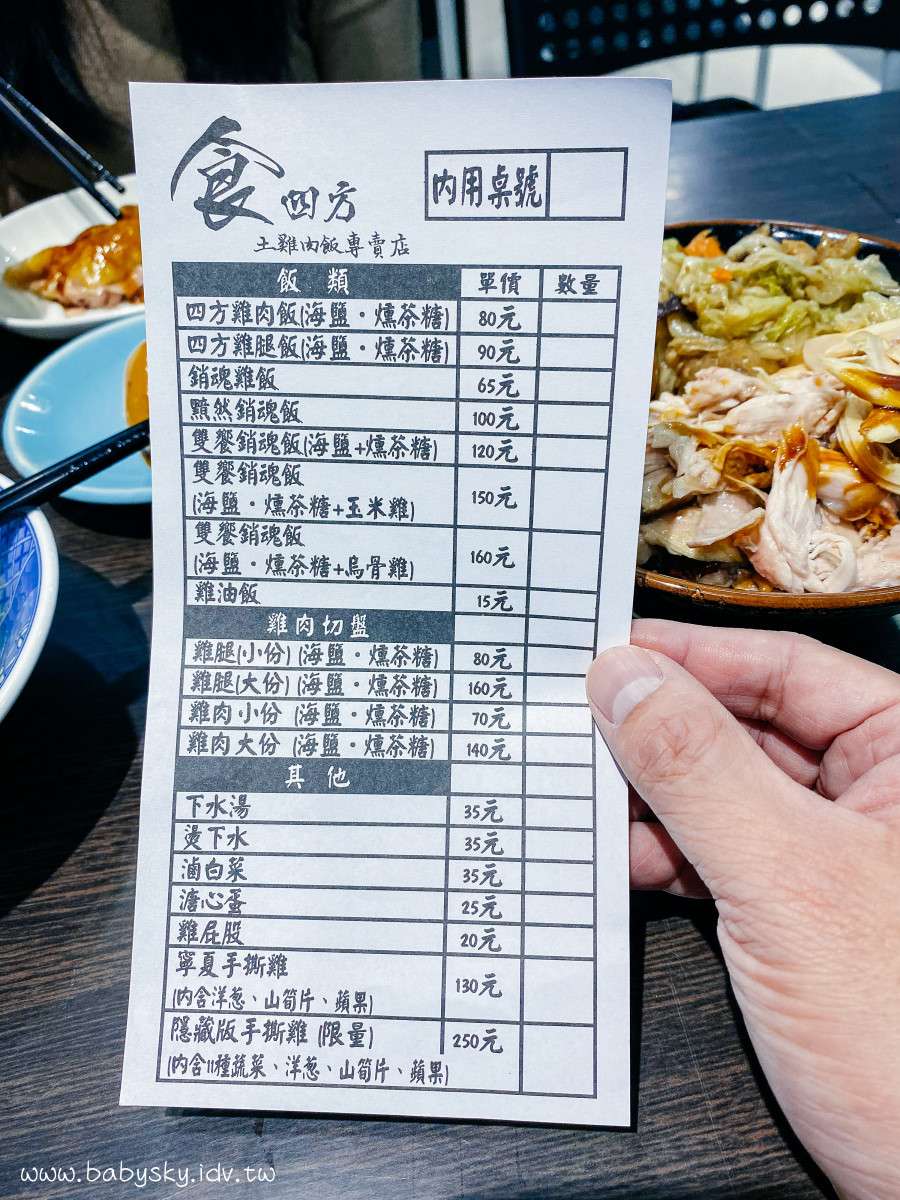 食四方
內用桌號
土雞肉飯專賣店
飯類 單價 數量
四方雞肉飯(海鹽・燻茶糖) 80元
四方雞腿飯(海鹽・燻茶糖) 90元
銷魂雞飯 65元
黯然銷魂飯 100元
雙饗銷魂飯(海鹽+燻茶糖) 120元
雙饗銷魂飯
(海鹽・燻茶糖+玉米雞) 150元
雙饗銷魂飯
(海鹽・燻茶糖+烏骨雞) 160元
雞油飯 15元
雞肉切盤
雞腿(小份) (海鹽・燻茶糖) 80元
雞腿(大份) (海鹽・燻茶糖) 160元
雞肉小份 (海鹽・燻茶糖) 70元
雞肉大份 (海鹽・燻茶糖) 140元
其他
下水湯 35元
燙下水 35元
滷白菜 35元
溏心蛋 25元
雞屁股 20元
寧夏手撕雞
(內含洋葱、山筍片、蘋果) 130元
隱藏版手撕雞 (限量) 250元
(內含11種蔬菜、洋葱、山筍片、蘋果)
www.babysky.idv.tw